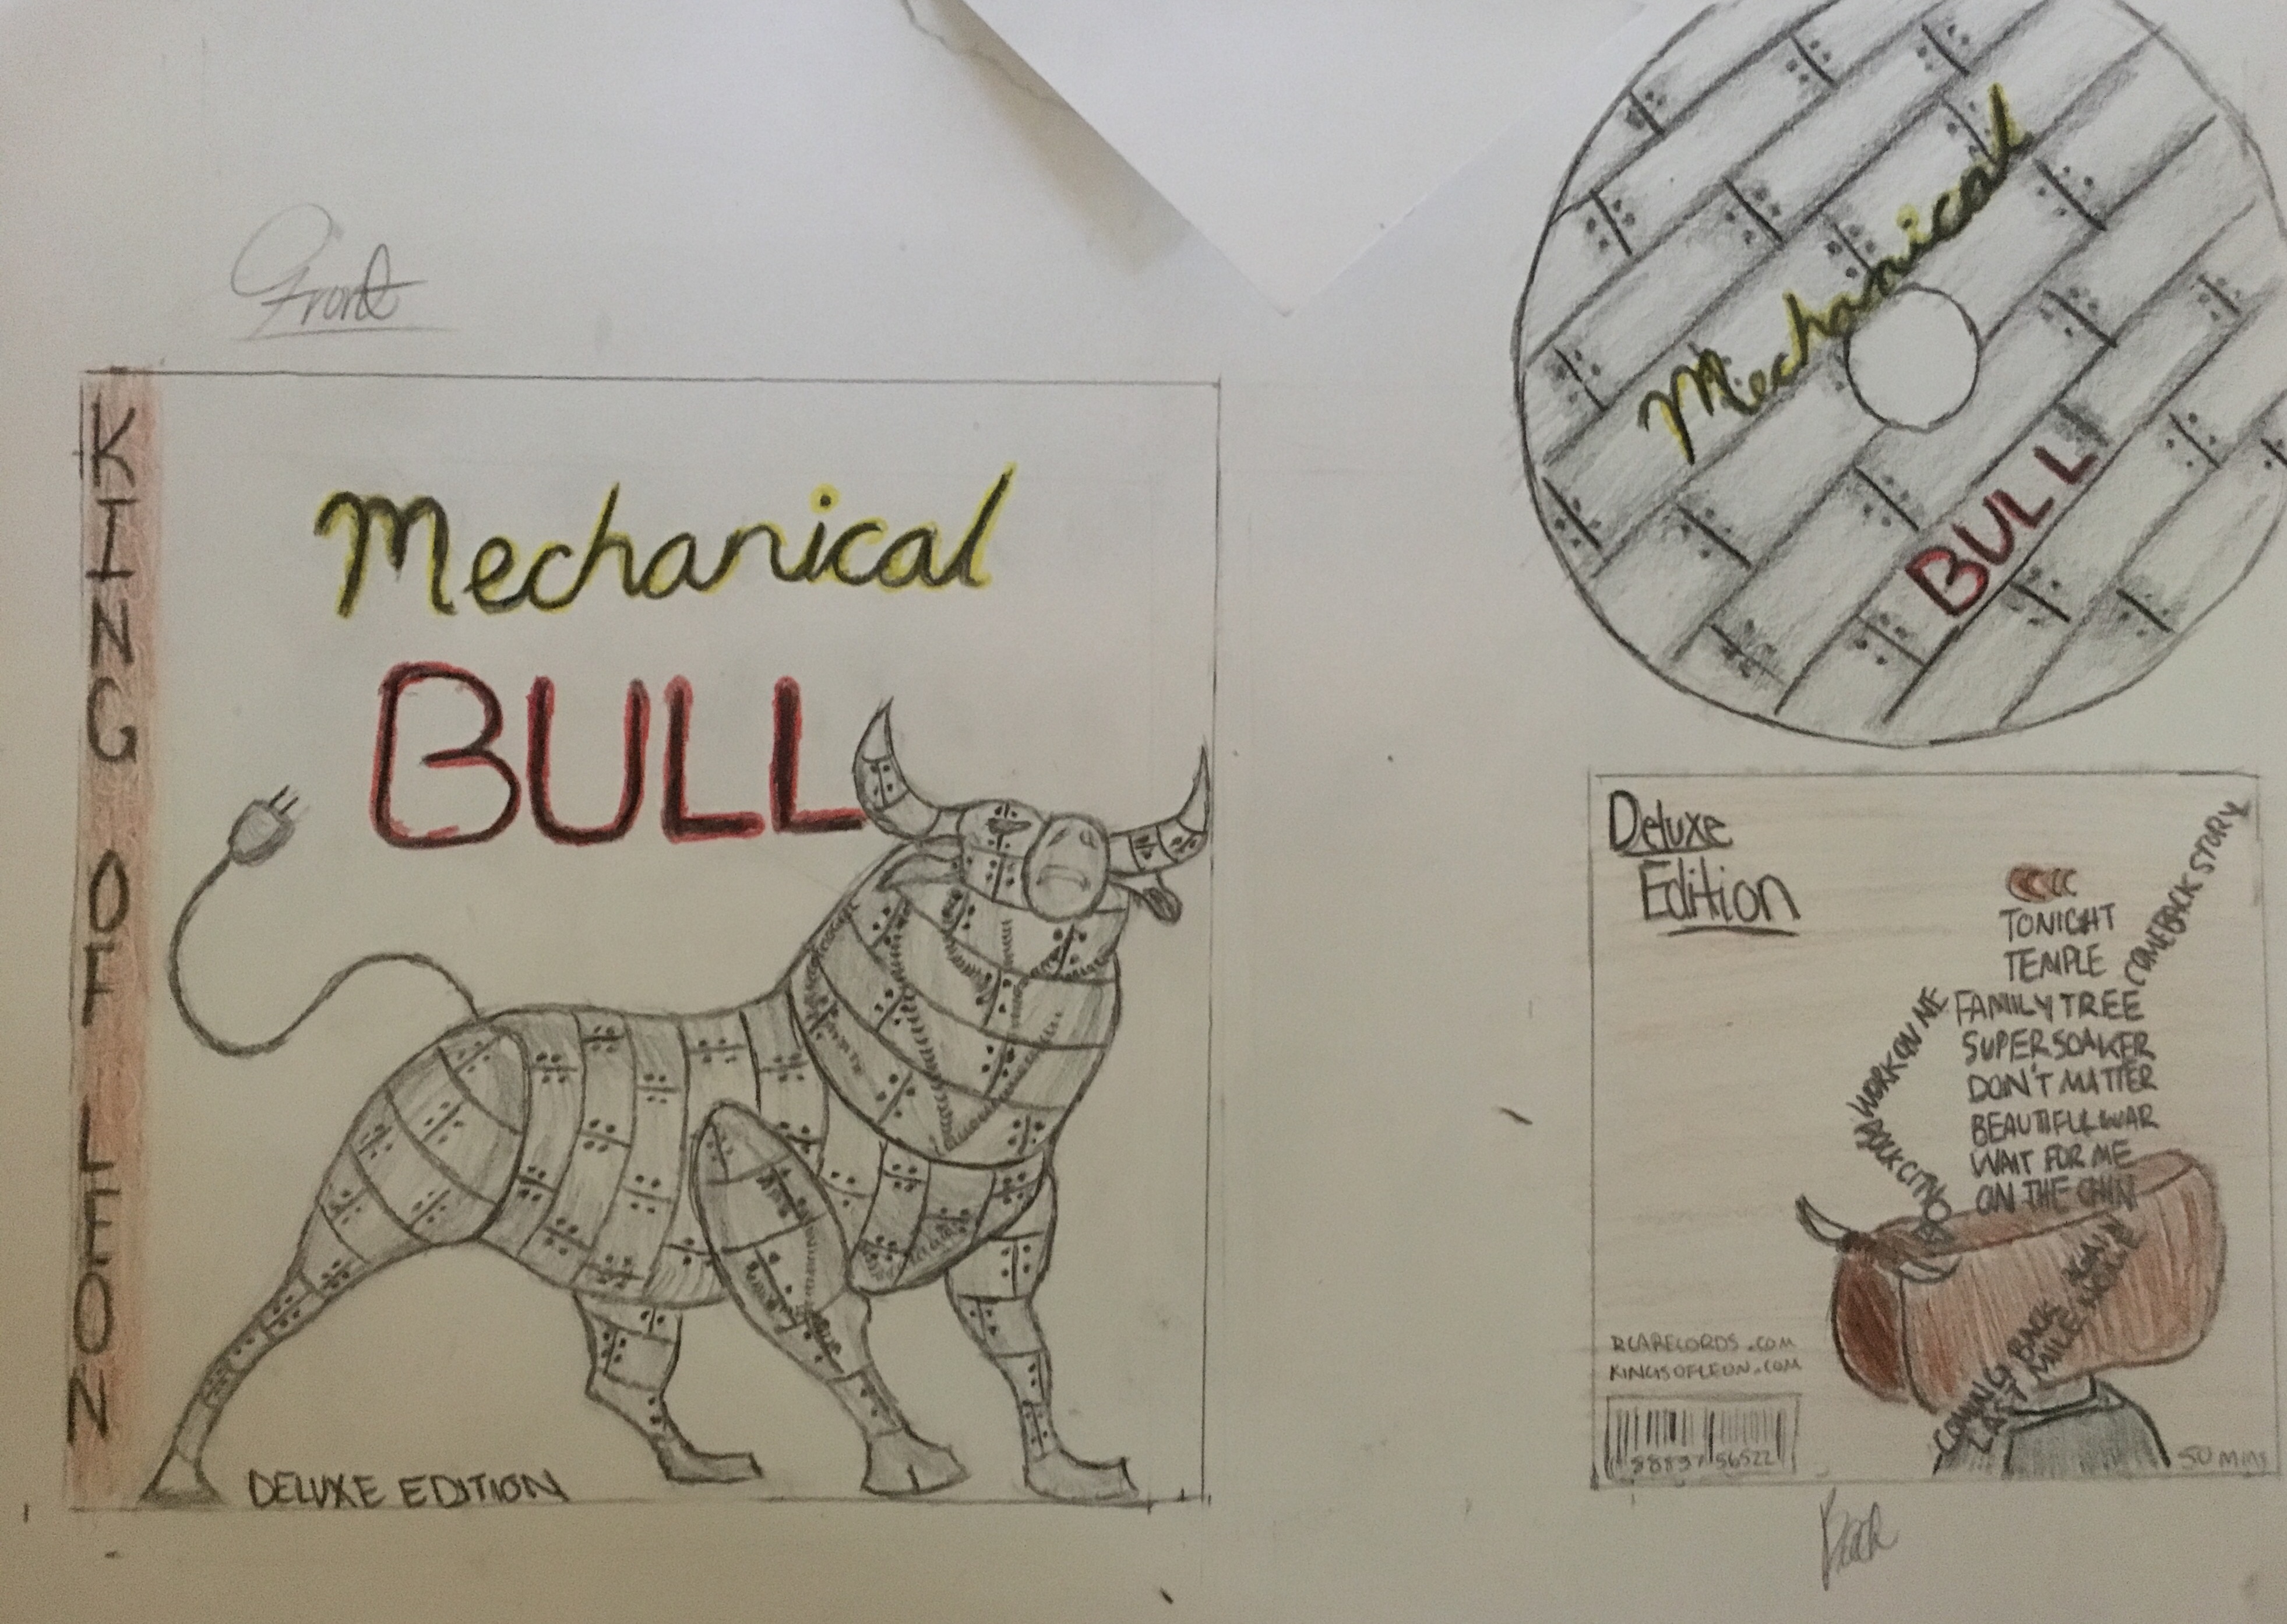 Front
KING OF LEON
Mechanical
BULL
DELUXE EDITION
Mechanical
BULL
Deluxe
Edition
TONIGHT
TEMPLE
COMEBACK STORY
WORK ON ME
FAMILY TREE
SUPERSOAKER
DON'T MATTER
BEAUTIFUL WAR
WAIT FOR ME
ON THE CHIN
ROCK CITY
COMING BACK AGAIN
LAST MILE HOME
RCARECORDS.COM
KINGSOFLEON.COM
88837 56522
50 mins
Back